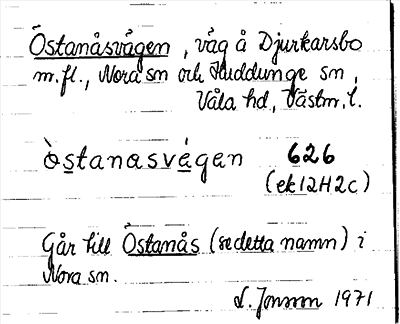 Östanåsvägen, väg å Djurkarsbo
m.fl., Nora sn och Huddunge sn,
Våla hd, Västm. l.
òstanasvégen 626
(ek 12H2c)
Går till Östanås (se detta namn) i
Nora sn.
L. Jonsson 1971